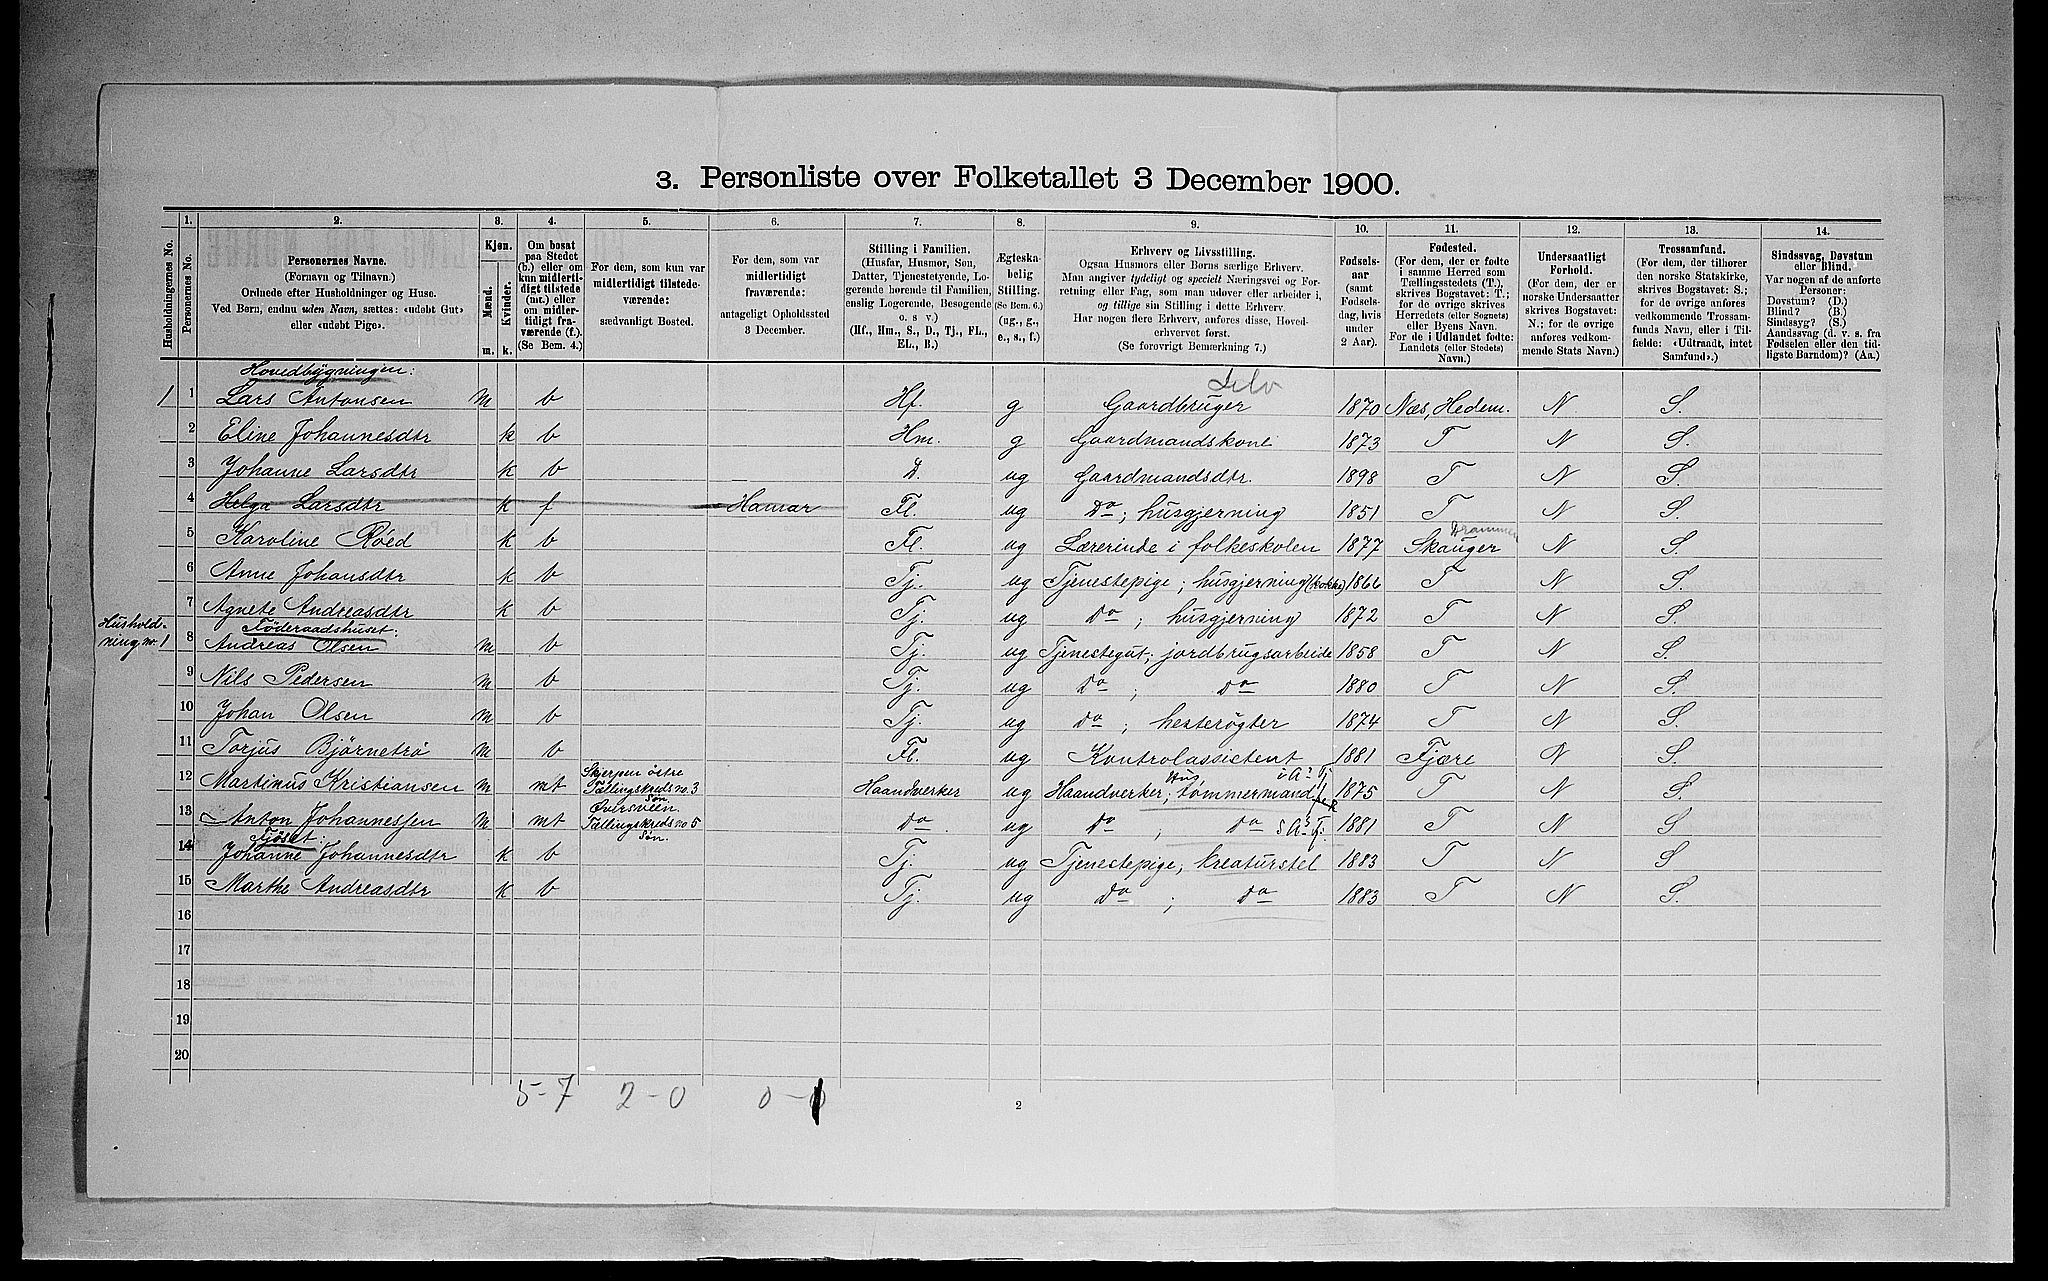 3. Personliste over Folketallet 3 December 1900.
Husholdningernes No.
1.
Personernes No.
2.
Personernes Navne.
(Fornavn og Tilnavn.)
Ordnede efter Husholdninger og Huse.
Ved Børn, endnu uden Navn, sættes: «udøbt Gut»
eller «udøbt Pige».
3.
Kjøn.
Mænd.
Kvinder.
m. k.
4.
Om bosat
paa Stedet
(b.) eller om
kun midlerti-
digt tilstede
(mt.) eller
om midler-
tidigt fra-
værende (f.).
(Se Bem. 4.)
5.
For dem, som kun var
midlertidigt tilstede-
værende:
sædvanligt Bosted.
6.
For dem, som var
midlertidigt
fraværende:
antageligt Opholdssted
3 December.
7.
Stilling i Familien.
(Husfar, Husmor, Søn,
Datter, Tjenestetyende, Lo-
gerende hørende til Familien,
enslig Logerende, Besøgende
o. s. v.)
(Hf., Hm., S., D., Tj., FL.,
EL., B.)
8.
Ægteska-
belig
Stilling.
(Se Bem. 6.)
(ug., g.,
e., s., f.)
9.
Erhverv og Livsstilling.
Ogsaa Husmors eller Børns særlige Erhverv.
Man angiver tydeligt og specielt Næringsvei og For-
retning eller Fag, som man udøver eller arbeider i,
og tillige sin Stilling i dette Erhverv.
Har nogen flere Erhverv, anføres disse, Hoved-
erhvervet først.
(Se forøvrigt Bemærkning 7.)
10.
Fødsels-
aar
(samt
Fødsels-
dag, hvis
under
2 Aar).
11.
Fødested.
(For dem, der er fødte
i samme Herred som
Tællingsstedets (T.),
skrives Bogstavet: T.;
for de øvrige skrives
Herredets (eller Sognets)
eller Byens Navn.
For de i Udlandet fødte:
Landets (eller Stedets)
Navn.)
12.
Undersaatligt
Forhold.
(For dem, der er
norske Undersaatter
skrives Bogstavet:
N.; for de øvrige
anføres vedkom-
mende Stats Navn.)
13.
Trossamfund.
(For dem, der tilhører
den norske Statskirke,
skrives Bogstavet: S.;
for de øvrige anføres
vedkommende Trossam-
funds Navn, eller i Til-
fælde: «Udtraadt, intet
Samfund».)
14.
Sindssvag, Døvstum
eller blind.
Var nogen af de anførte
Personer:
Døvstum? (D.)
Blind? (B.)
Sindssyg? (S.)
Aandssvag (d. v. s. fra
Fødselen eller den tid-
ligste Barndom)? (Aa.)
Hovedbygningen:
Selv
1 1 Lars Antonsen m b Hf. g Gaardbruger 1870 Næs, Hedem. N S.
2 Eline Johannesdtr k b Hm. g Gaardmandskone 1873 T N S.
3 Johanne Larsdtr k b D. ug Gaardmandsdtr. 1898 T N S.
4 Helga Larsdtr k f Hamar Fl. ug Do; husgjerning 1851 T N S.
Drammen
5 Karoline Røed k b Fl. ug Lærerinde i folkeskolen 1877 Skauger N S.
6 Anne Johansdtr k b Tj. ug Tjenestepige; husgjerning (kokke) 1866 T N S.
7 Agnete Andreasdtr k b Tj. ug Do; husgjerning 1872 T N S.
Hushold-
ning no. 1
Föderaadshuset:
8 Andreas Olsen m b Tj. ug Tjenestegut; jordbrugsarbeide 1858 T N S.
9 Nils Pedersen m b Tj. ug Do; Do 1880 T N S.
10 Johan Olsen m b Tj. ug Do; hesterögter 1874 T N S.
11 Torjus Bjørnetrö m b Fl. ug Kontrolassistent 1881 Fjære N S.
12 Martinus Kristiansen m mt Skjerpen östre Tællingskreds no. 3 Søn Haandverker ug Haandverker; Hustömmermand 1875 T N S.
13 Anton Johannessen m mt Øversveen Tællingskreds no 5 Søn. Do. ug Do; Do 1881 T N S
Fjöset:
14 Johanne Johannesdtr k b Tj. ug Tjenestepige; kreaturstel 1883 T N S
15 Marthe Andreasdtr k b Tj. ug Do; Do 1883 T N S.
16
17
18
19
20
5-7 2-0 0-1
2